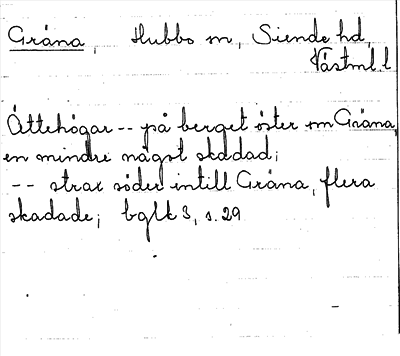 Gräna, Hubbo sn, Siende hd,
Västml. l
Ättehögar -- på berget öster om Gräna,
en mindre något skadad;
-- strax söder intill Gräna, flera
skadade; bglk 3, s. 29